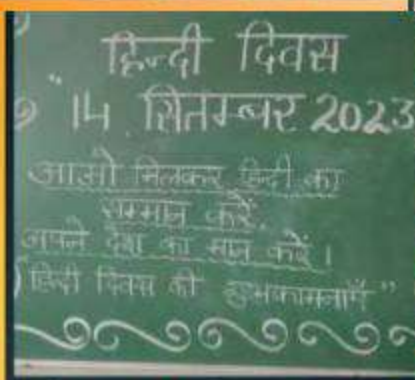 हिन्दी दिवस
"14 सितम्बर 2023
आओ मिलकर हिन्दी का
सम्मान करें,
अपने देश का मान करें।
हिन्दी दिवस की शुभकामनाएँ"